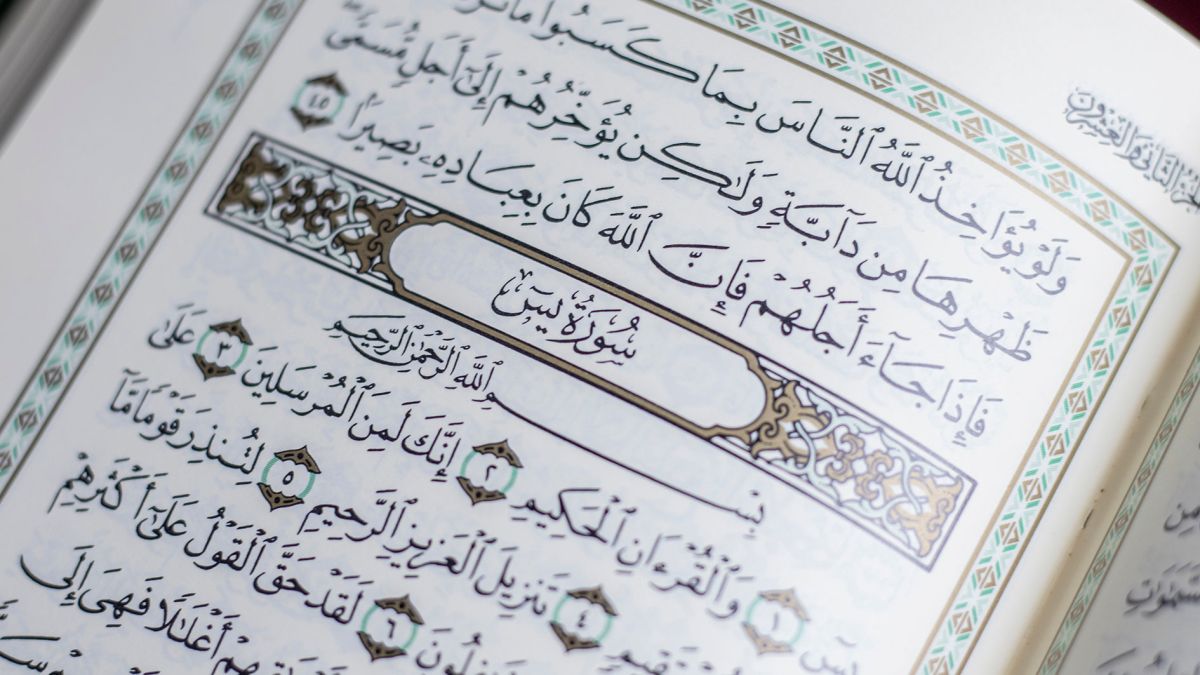 الجزء الثاني والعشرون
وَلَوْ يُؤَاخِذُ ٱللَّهُ ٱلنَّاسَ بِمَا كَسَبُوا۟ مَا تَرَكَ
ظَهْرِهَا مِن دَآبَّةٍ وَلَٰكِن يُؤَخِّرُهُمْ إِلَىٰٓ أَجَلٍ مُّسَمًّى
فَإِذَا جَآءَ أَجَلُهُمْ فَإِنَّ ٱللَّهَ كَانَ بِعِبَادِهِۦ بَصِيرًۢا ٤٥
سُورَةُ يسٓ
بِسْمِ ٱللَّهِ ٱلرَّحْمَٰنِ ٱلرَّحِيمِ
يسٓ ١ وَٱلْقُرْءَانِ ٱلْحَكِيمِ ٢ إِنَّكَ لَمِنَ ٱلْمُرْسَلِينَ ٣ عَلَىٰ
٤ تَنزِيلَ ٱلْعَزِيزِ ٱلرَّحِيمِ ٥ لِتُنذِرَ قَوْمًا مَّآ
٦ لَقَدْ حَقَّ ٱلْقَوْلُ عَلَىٰٓ أَكْثَرِهِمْ
أَغْلَٰلًا فَهِىَ إِلَى